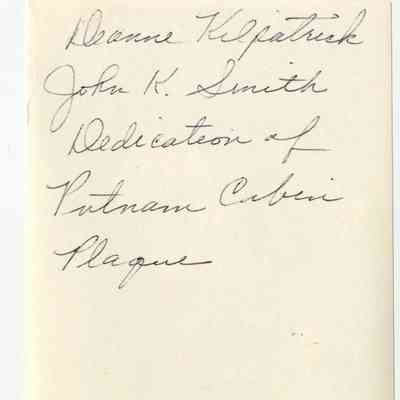 Deanne Kilpatrick
John K. Smith
Dedication of
Putnam Cabin
Plaque